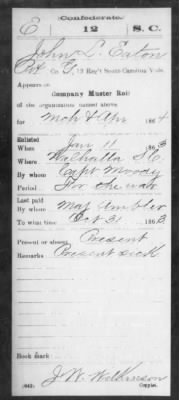 Confederate.
E 12 S.C.
John L. Eaton
Pvt Co E, 12 Reg't South Carolina Vols.
Appears on
Company Muster Roll
of the organization named above,
for Mch & Apr 1864
Enlisted
When Jan 11 1863
Where Walhalla S.C.
By whom Capt Moody
Period For the war
Last paid
By whom Maj Ambler
To what time Oct 31 1863
Present or absent Present
Remarks Present sick
Book mark
(642)
J. W. Wilkinson
Copyist.